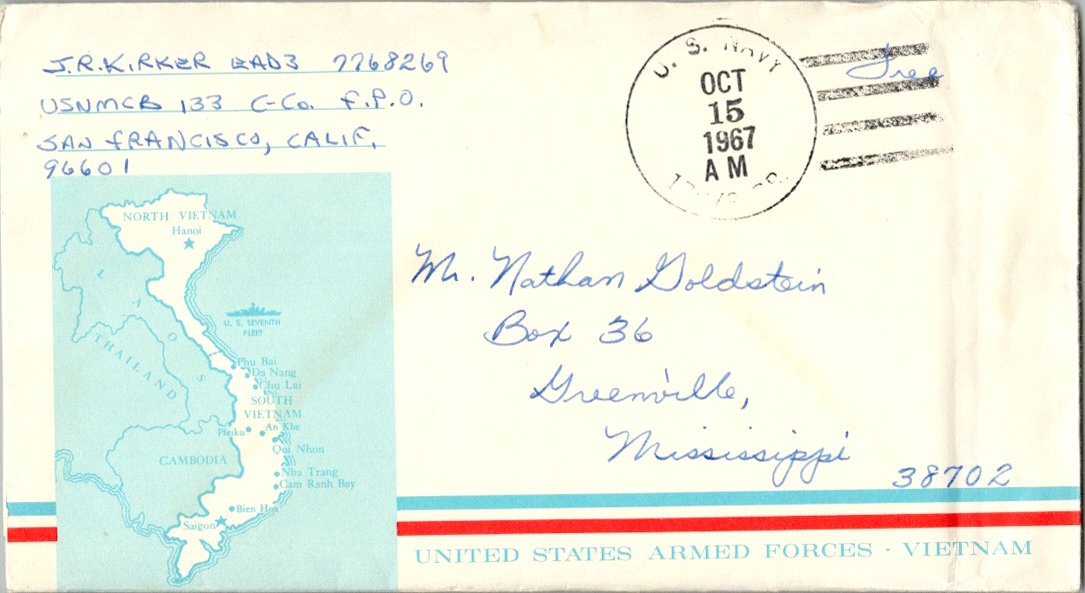 J.R. KIRKER EAD3 7768269
USNMCB 133 C-Co. F.P.O.
SAN FRANCISCO, CALIF.
96601
U. S. NAVY
OCT
15
1967
AM
Free
Mr. Nathan Goldstein
Box 36
Greenville,
Mississippi
38702
NORTH VIETNAM
Hanoi
LAOS
THAILAND
U. S. SEVENTH
FLEET
Phu Bai
Da Nang
Chu Lai
SOUTH
VIETNAM
Pleiku
An Khe
Qui Nhon
CAMBODIA
Nha Trang
Cam Ranh Bay
Bien Hoa
Saigon
UNITED STATES ARMED FORCES - VIETNAM